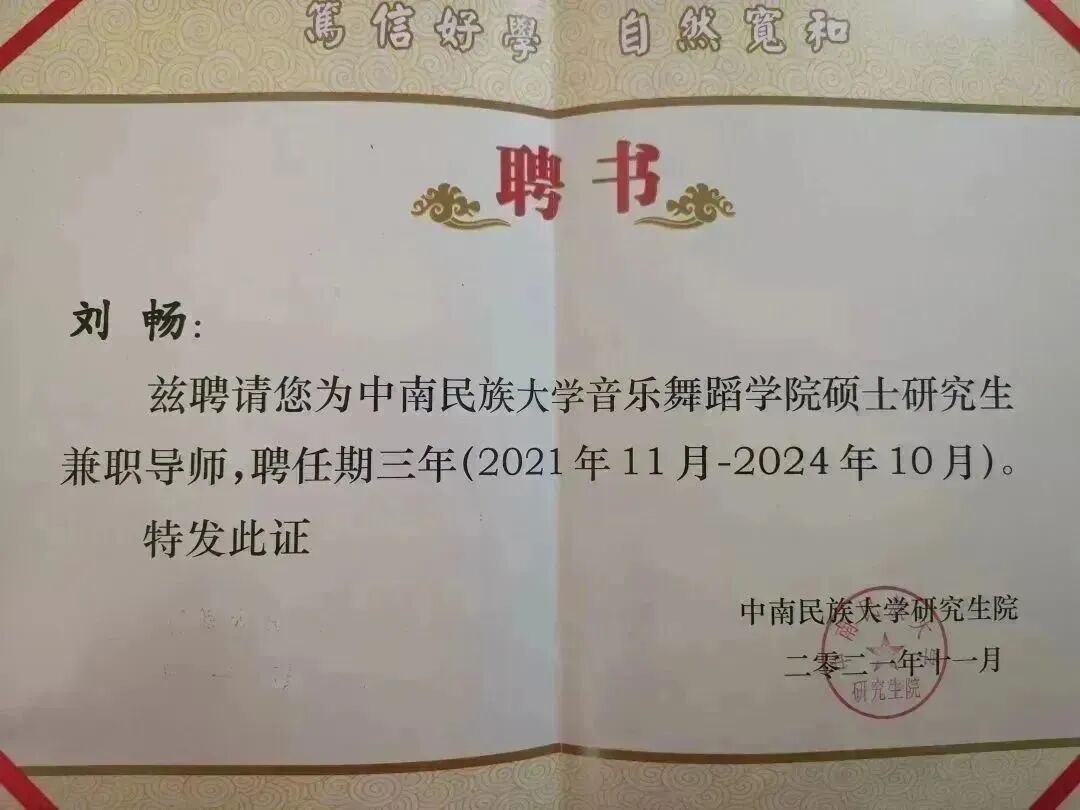 篤信好學 自然寬和
聘书
刘畅:
兹聘请您为中南民族大学音乐舞蹈学院硕士研究生
兼职导师,聘任期三年(2021年11月-2024年10月)。
特发此证
中南民族大学研究生院
二零二一年十一月
研究生院